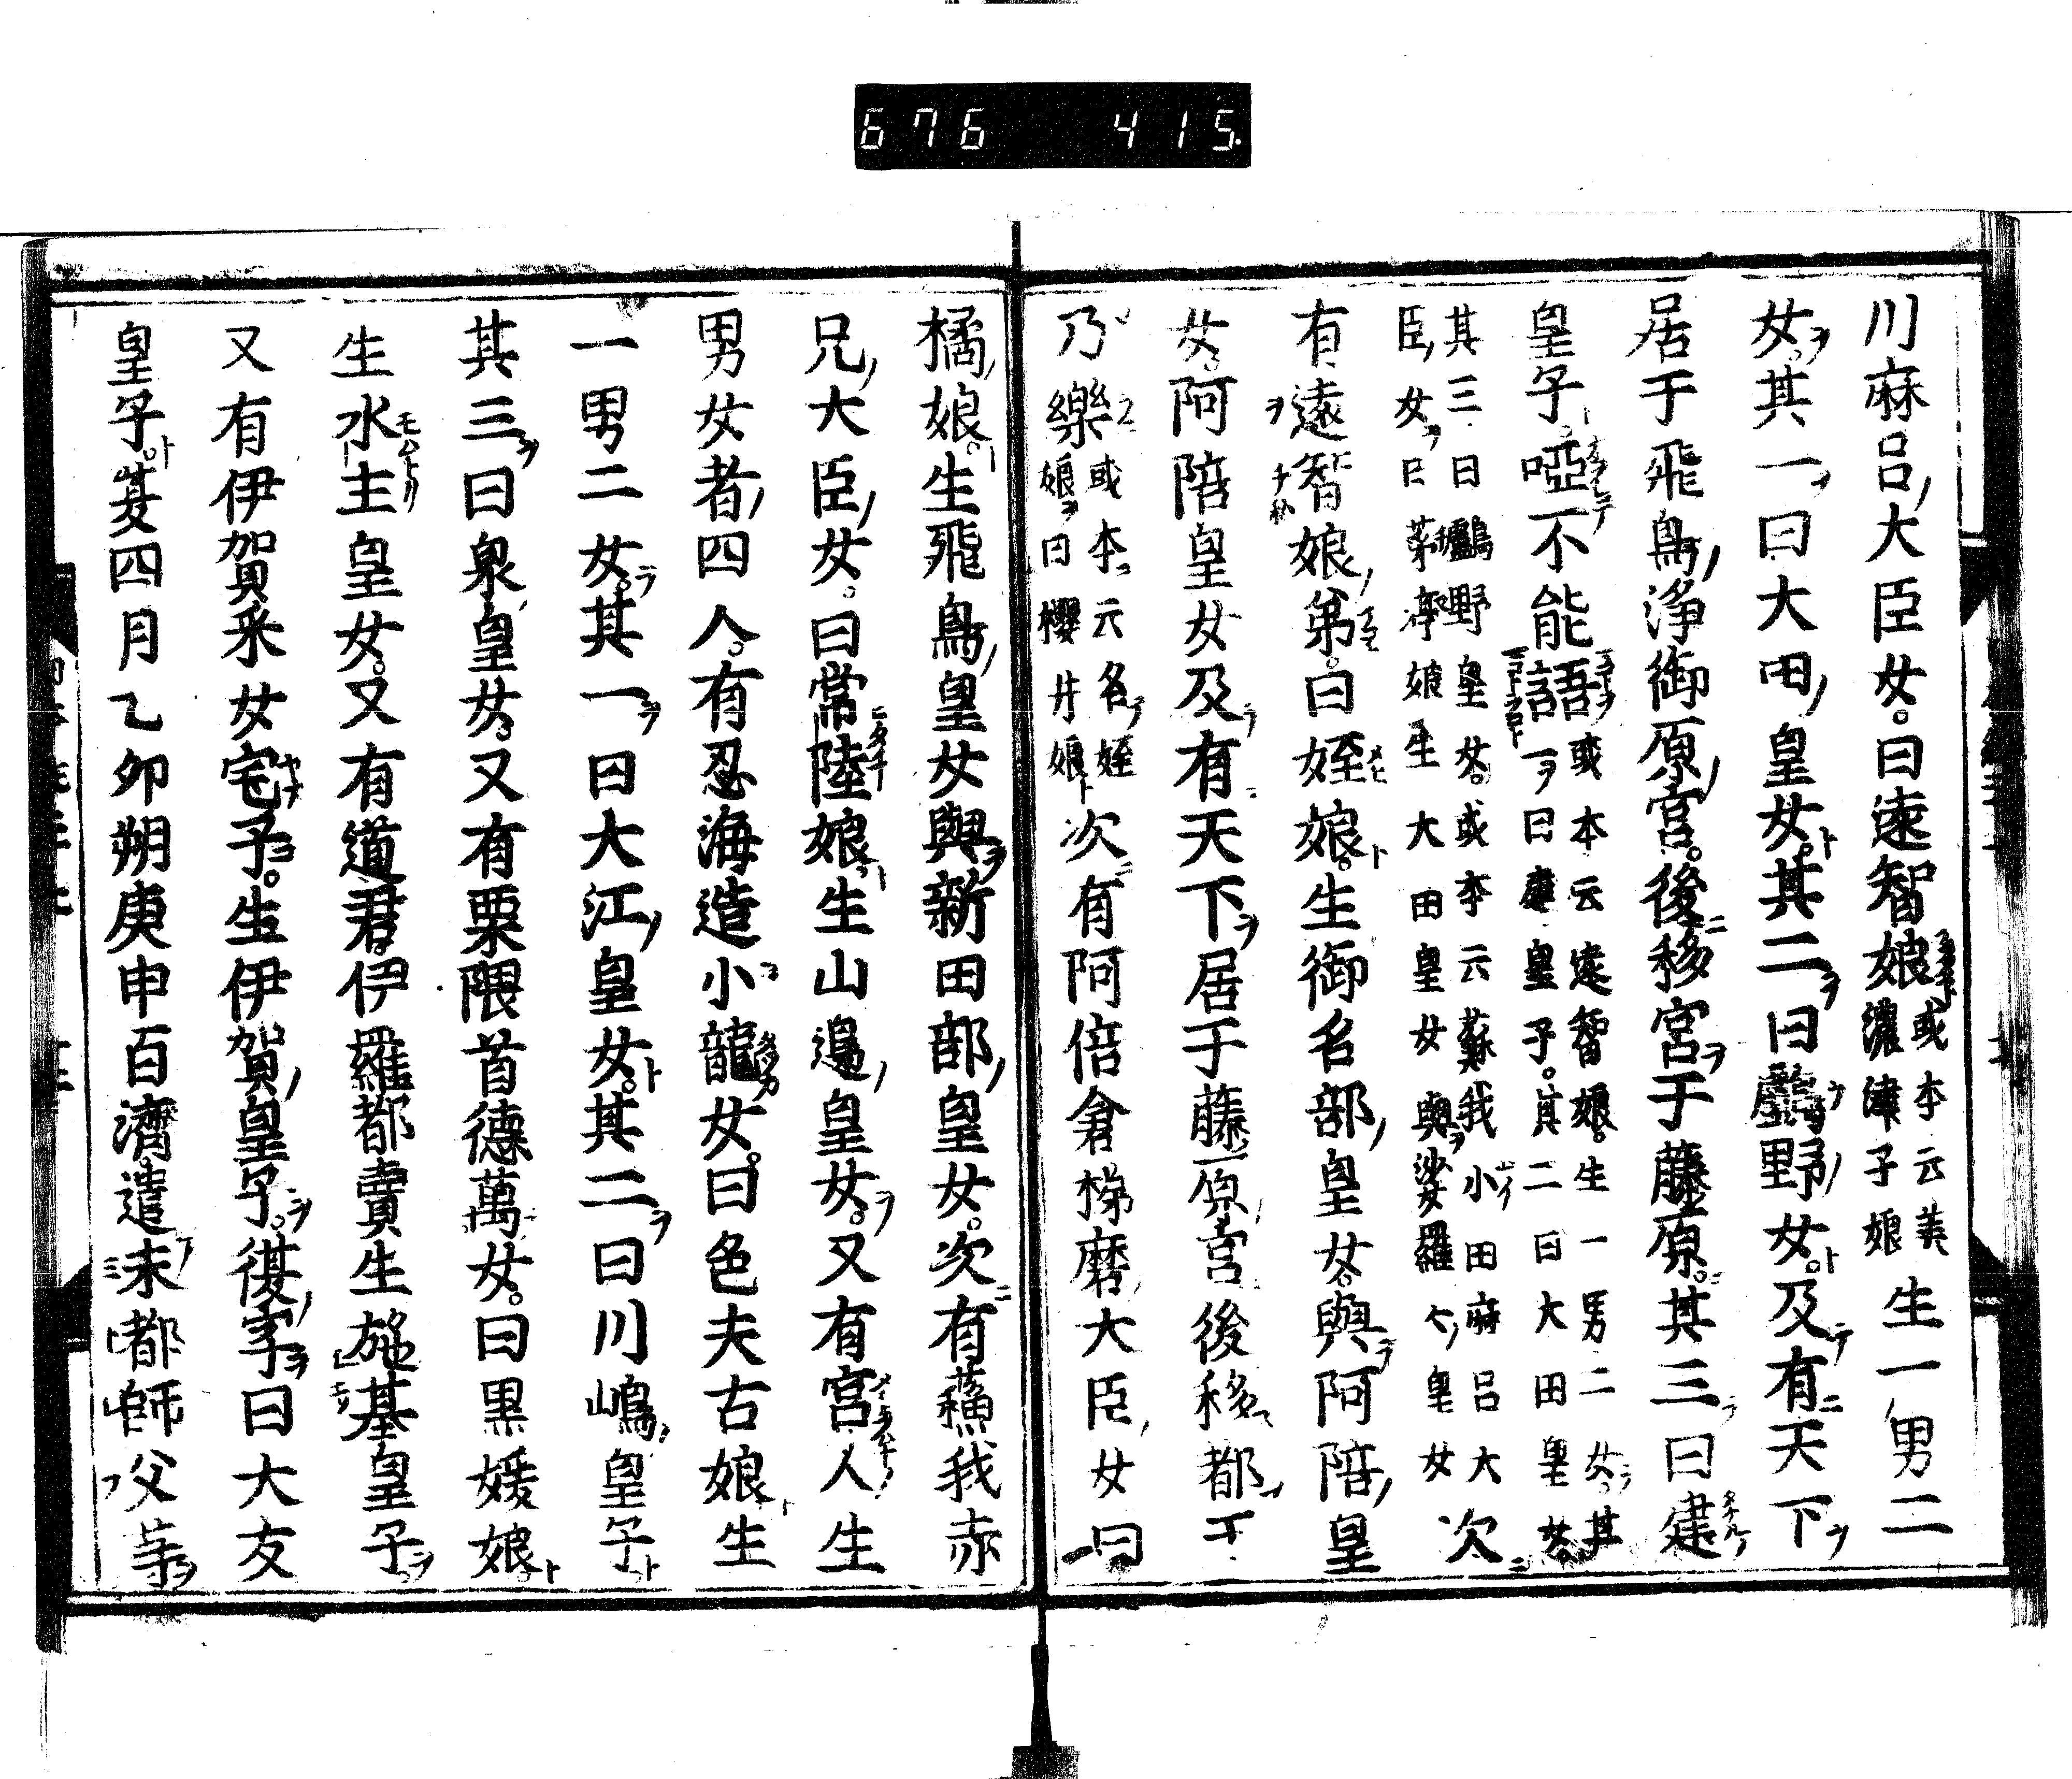 676 415
川麻呂大臣女。曰遠智娘 或本云美濃津子娘 生一男二
女。其一曰大田皇女。其二曰鸕野女。及有天下
居于飛鳥淨御原宮。後移宮于藤原。其三曰建
皇子。啞不能語 或本云遠智娘。生一男二女。其一曰建皇子。其二曰大田皇女。
其三曰鸕野皇女。或本云蘇我小田麻呂大臣女曰茅渟娘生大田皇女與娑羅々皇女 次
有遠智娘弟。曰姪娘。生御名部皇女。與阿陪皇
女。阿陪皇女及有天下居于藤原宮後移都于
乃樂 或本云名姪娘曰櫻井娘 次有阿倍倉梯麿大臣女曰
橘娘。生飛鳥皇女與新田部皇女。次有蘓我赤
兄大臣女。曰常陸娘生山邊皇女。又有宮人生
男女者四人。有忍海造小龍女。曰色夫古娘生
一男二女。其一曰大江皇女。其二曰川嶋皇子
其三曰泉皇女。又有栗隈首德萬女。曰黒媛娘
生水主皇女。又有道君伊羅都賣生施基皇子
又有伊賀采女宅子。生伊賀皇子。後字曰大友
皇子。夏四月乙卯朔庚申百濟遣末都師父等